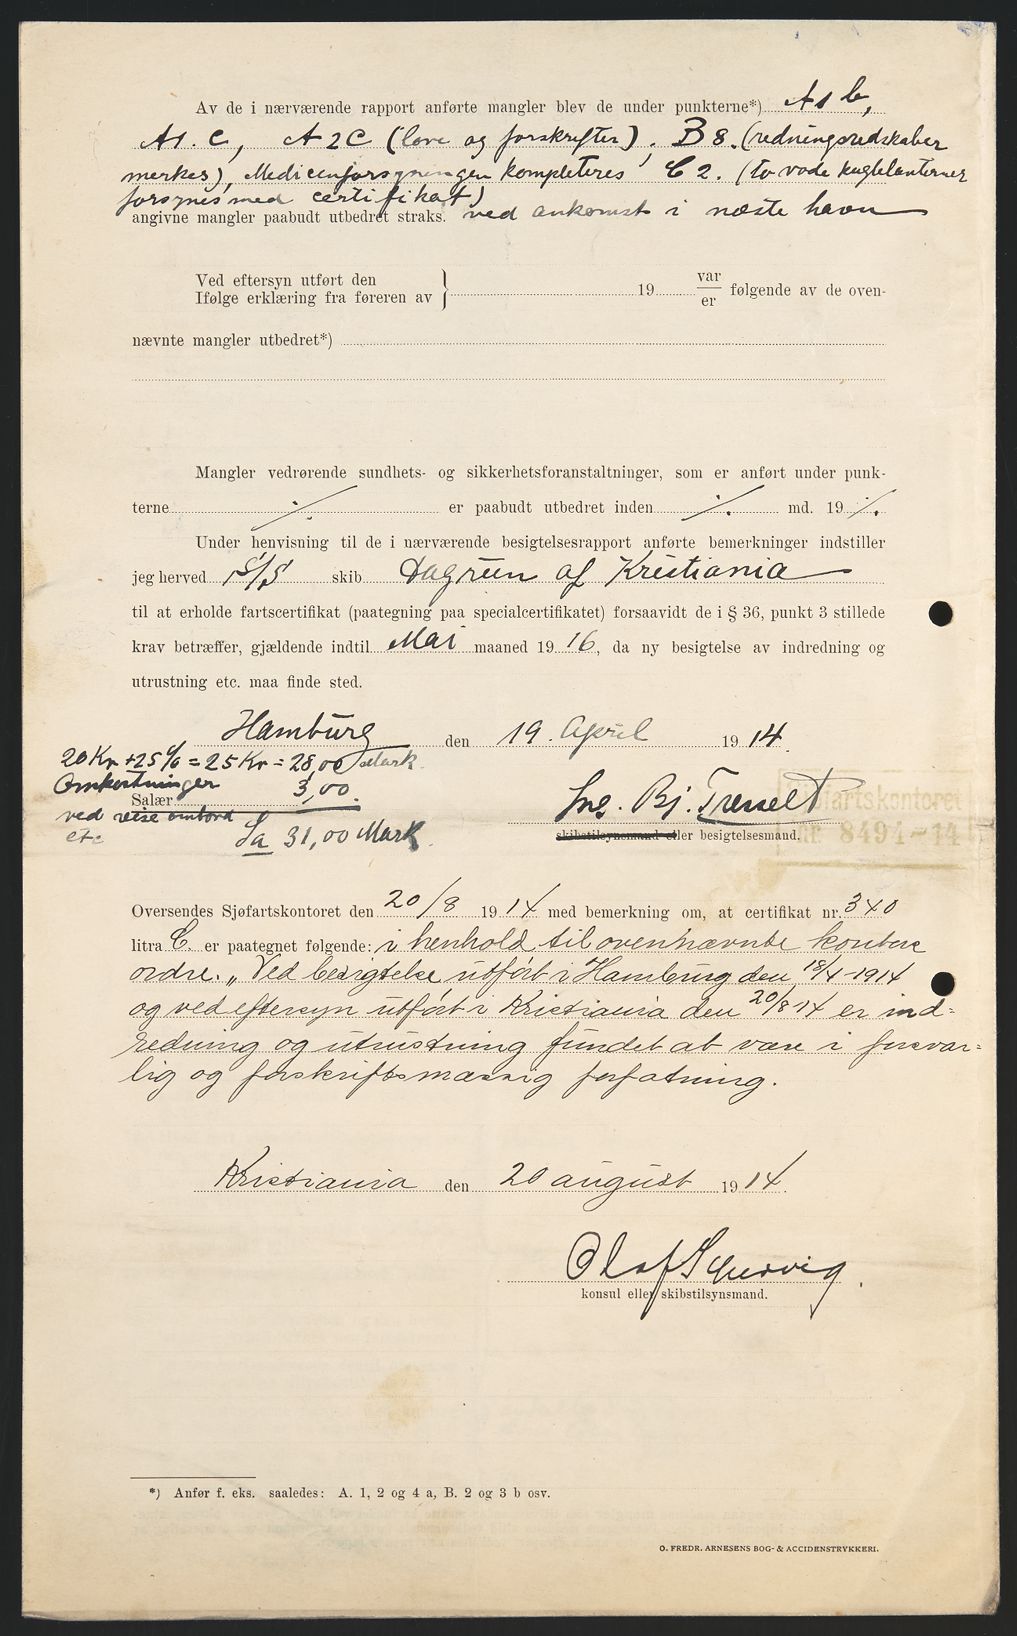 Av de i nærværende rapport anførte mangler blev de under punkterne*) A1 b,
A1. C, A2C (love og forskrifter), B8. (redningsredskaber
merkes), Medicinforsyningen kompleteres C2. (to røde kuglelanterner
forsynes med certifikat)
angivne mangler paabudt utbedret straks. ved ankomst i næste havn
Ved eftersyn utført den
Ifølge erklæring fra føreren av } 19 var/er følgende av de oven-
nævnte mangler utbedret*)
Mangler vedrørende sundhets- og sikkerhetsforanstaltninger, som er anført under punk-
terne ·/. er paabudt utbedret inden ·/. md. 19 ·/.
Under henvisning til de i nærværende besigtelsesrapport anførte bemerkninger indstiller
jeg herved S/S skib Dagrun af Kristiania
til at erholde fartscertifikat (paategning paa specialcertifikatet) forsaavidt de i § 36, punkt 3 stillede
krav betræffer, gjældende indtil Mai maaned 1916, da ny besigtelse av indredning og
utrustning etc. maa finde sted.
Hamburg den 19. April 1914.
20 Kr + 25 % = 25 Kr = 28,00 Mark.
Omkostninger
Salær 3,00.
ved reise ombord
etc Sa 31,00 Mark.
Ing. Bj. Tresselt
skibstilsynsmand eller besigtelsesmand.
Sjøfartskontoret
nr. 8494-14
Oversendes Sjøfartskontoret den 20/8 1914 med bemerkning om, at certifikat nr. 340
litra C er paategnet følgende: i henhold til ovennævnte kontors
ordre. „Ved besigtelse utført i Hamburg den 18/4-1914
og ved eftersyn utført i Kristiania den 20/8 14 er ind=
redning og utrustning fundet at være i forsvar=
lig og forskriftsmæssig forfatning.
Kristiania den 20 august 1914.
Olaf Schervig.
konsul eller skibstilsynsmand.
*) Anfør f. eks. saaledes: A. 1, 2 og 4 a, B. 2 og 3 b osv.
O. FREDR. ARNESENS BOG- & ACCIDENSTRYKKERI.